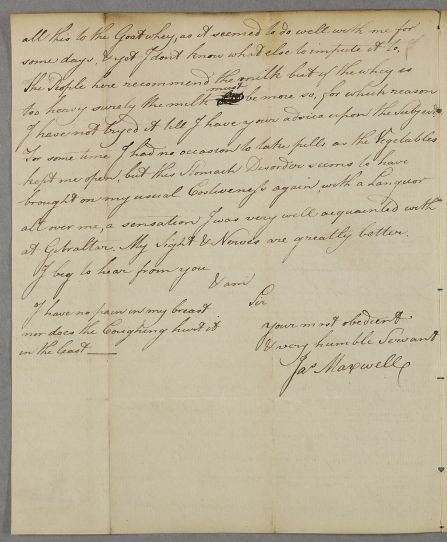 all this to the Goat whey, as it seemed to do well with me for
some days, & yet I dont know what else to impute it to,
The People here recommend the milk but if the whey is
too heavy surely the milk must be more so, for which reason
I have not tryed it till I have your advice upon the Subject.
For some time I had no occasion to take pills as the Vegetables
kept me open, but this Stomach Disorder seems to have
brought on my usual Costiveness again, with a Languor
all over me, a sensation I was very well acquainted with
at Gibraltar, My Sight & Nerves are greatly better.
I beg to hear from you
& am
Sir
your most obedient
& very humble Servant
Jas Maxwell
I have no pain in my breast
nor does the Coughing hurt it
in the least